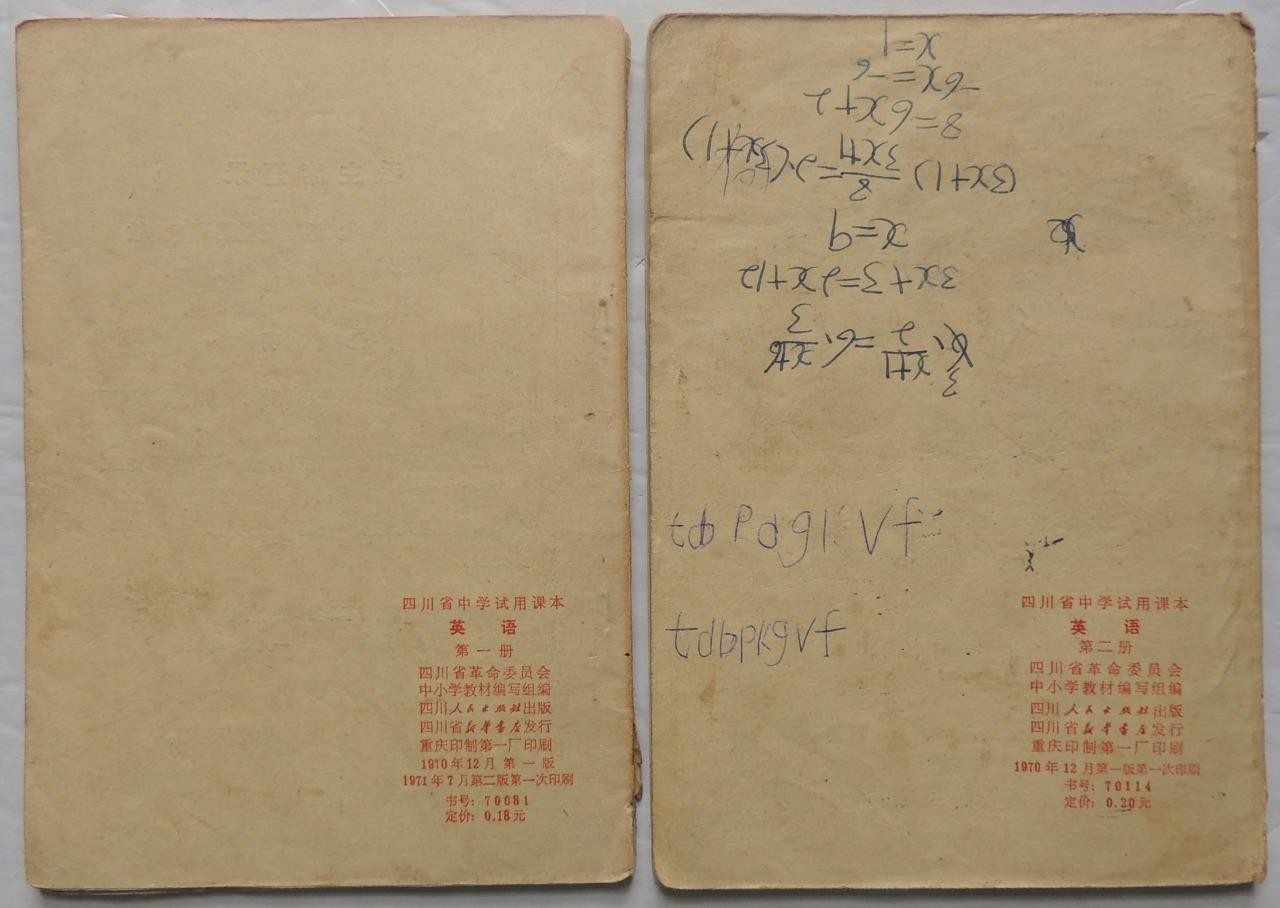 四川省中学试用课本
英 语
第一册
四川省革命委员会
中小学教材编写组编
四川人民出版社出版
四川省新华书店发行
重庆印制第一厂印刷
1970年12月第一版
1971年7月第二版第一次印刷
书号：70081
定价：0.18元
x+1/2=6·x+6/3
3x+3=2x+12
x=9
(3x+1) 8/3x+1=2
8=6x+2
-6x=-6
x=1
tdbpkgvf
四川省中学试用课本
英 语
第二册
四川省革命委员会
中小学教材编写组编
四川人民出版社出版
四川省新华书店发行
重庆印制第一厂印刷
1970年12月第一版第一次印刷
书号：70114
定价：0.20元